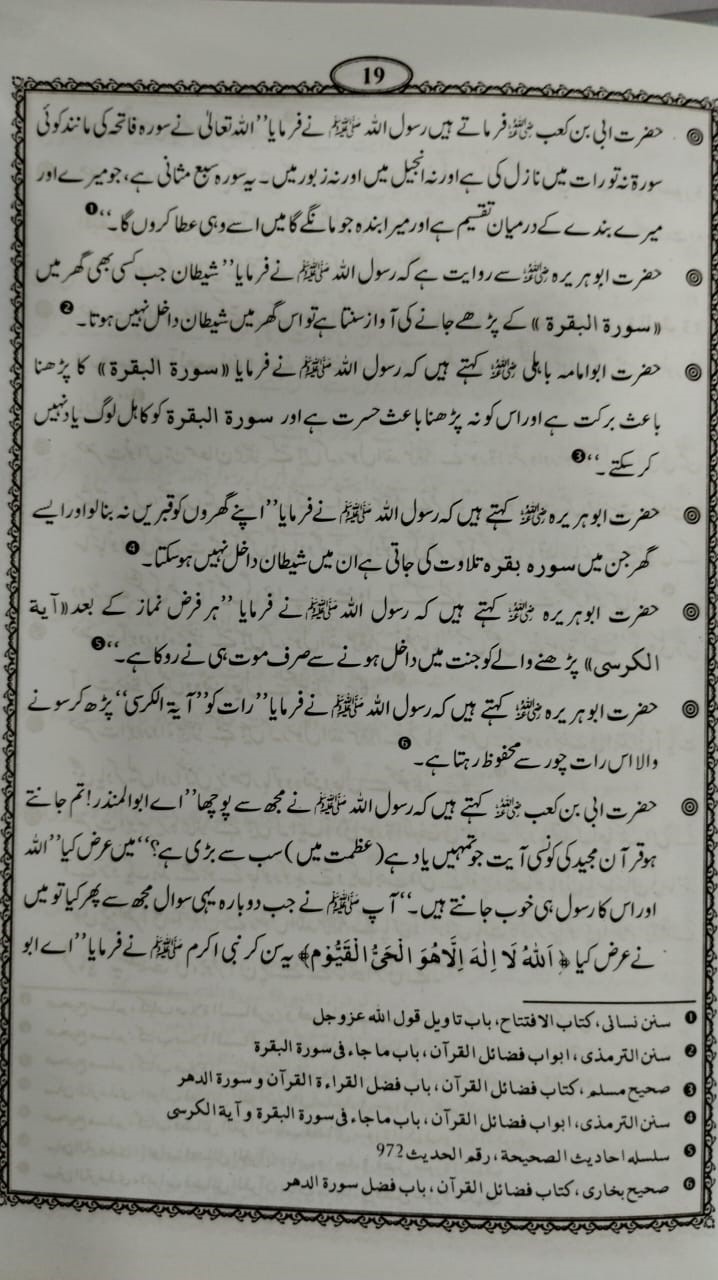 19
حضرت ابی بن کعب رضی اللہ عنہ فرماتے ہیں رسول اللہ ﷺ نے فرمایا ’’اللہ تعالیٰ نے سورہ فاتحہ کی مانند کوئی
سورۃ نہ تورات میں نازل کی ہے اور نہ انجیل میں اور نہ زبور میں۔ یہ سورہ سبع مثانی ہے، جو میرے اور
میرے بندے کے درمیان تقسیم ہے اور میرا بندہ جو مانگے گا میں اسے وہی عطا کروں گا۔‘‘ ❶
حضرت ابو ہریرہ رضی اللہ عنہ سے روایت ہے کہ رسول اللہ ﷺ نے فرمایا ’’شیطان جب کسی بھی گھر میں
«سورة البقرة» کے پڑھے جانے کی آواز سنتا ہے تو اس گھر میں شیطان داخل نہیں ہوتا۔ ❷
حضرت ابو امامہ باہلی رضی اللہ عنہ کہتے ہیں کہ رسول اللہ ﷺ نے فرمایا «سورة البقرة» کا پڑھنا
باعث برکت ہے اور اس کو نہ پڑھنا باعث حسرت ہے اور سورة البقرة کو کاہل لوگ یاد نہیں
کر سکتے۔‘‘ ❸
حضرت ابو ہریرہ رضی اللہ عنہ کہتے ہیں کہ رسول اللہ ﷺ نے فرمایا ’’اپنے گھروں کو قبریں نہ بنا لو اور ایسے
گھر جن میں سورہ بقرہ تلاوت کی جاتی ہے ان میں شیطان داخل نہیں ہو سکتا۔ ❹
حضرت ابو ہریرہ رضی اللہ عنہ کہتے ہیں کہ رسول اللہ ﷺ نے فرمایا ’’ہر فرض نماز کے بعد «آیة
الکرسی» پڑھنے والے کو جنت میں داخل ہونے سے صرف موت ہی نے روکا ہے۔‘‘ ❺
حضرت ابو ہریرہ رضی اللہ عنہ کہتے ہیں کہ رسول اللہ ﷺ نے فرمایا ’’رات کو ’’آیۃ الکرسی‘‘ پڑھ کر سونے
والا اس رات چور سے محفوظ رہتا ہے۔ ❻
حضرت ابی بن کعب رضی اللہ عنہ کہتے ہیں کہ رسول اللہ ﷺ نے مجھ سے پوچھا ’’اے ابوالمنذر! تم جانتے
ہو قرآن مجید کی کونسی آیت جو تمہیں یاد ہے (عظمت میں) سب سے بڑی ہے؟‘‘ میں عرض کیا ’’اللہ
اور اس کا رسول ہی خوب جانتے ہیں۔‘‘ آپ ﷺ نے جب دوبارہ یہی سوال مجھ سے پھر کیا تو میں
نے عرض کیا ﴿اَللهُ لَا اِلٰهَ اِلَّا هُوَ الْحَیُّ الْقَیُّوْم﴾ یہ سن کر نبی اکرم ﷺ نے فرمایا ’’اے ابو
❶ سنن نسائی، کتاب الافتتاح، باب تاویل قول الله عزوجل
❷ سنن الترمذی، ابواب فضائل القرآن، باب ما جاء فی سورة البقرة
❸ صحیح مسلم، کتاب فضائل القرآن، باب فضل القراءة القرآن و سورة الدهر
❹ سنن الترمذی، ابواب فضائل القرآن، باب ماجاء فی سورة البقرة و آیة الکرسی
❺ سلسله احادیث الصحیحة، رقم الحدیث 972
❻ صحیح بخاری، کتاب فضائل القرآن، باب فضل سورة الدهر